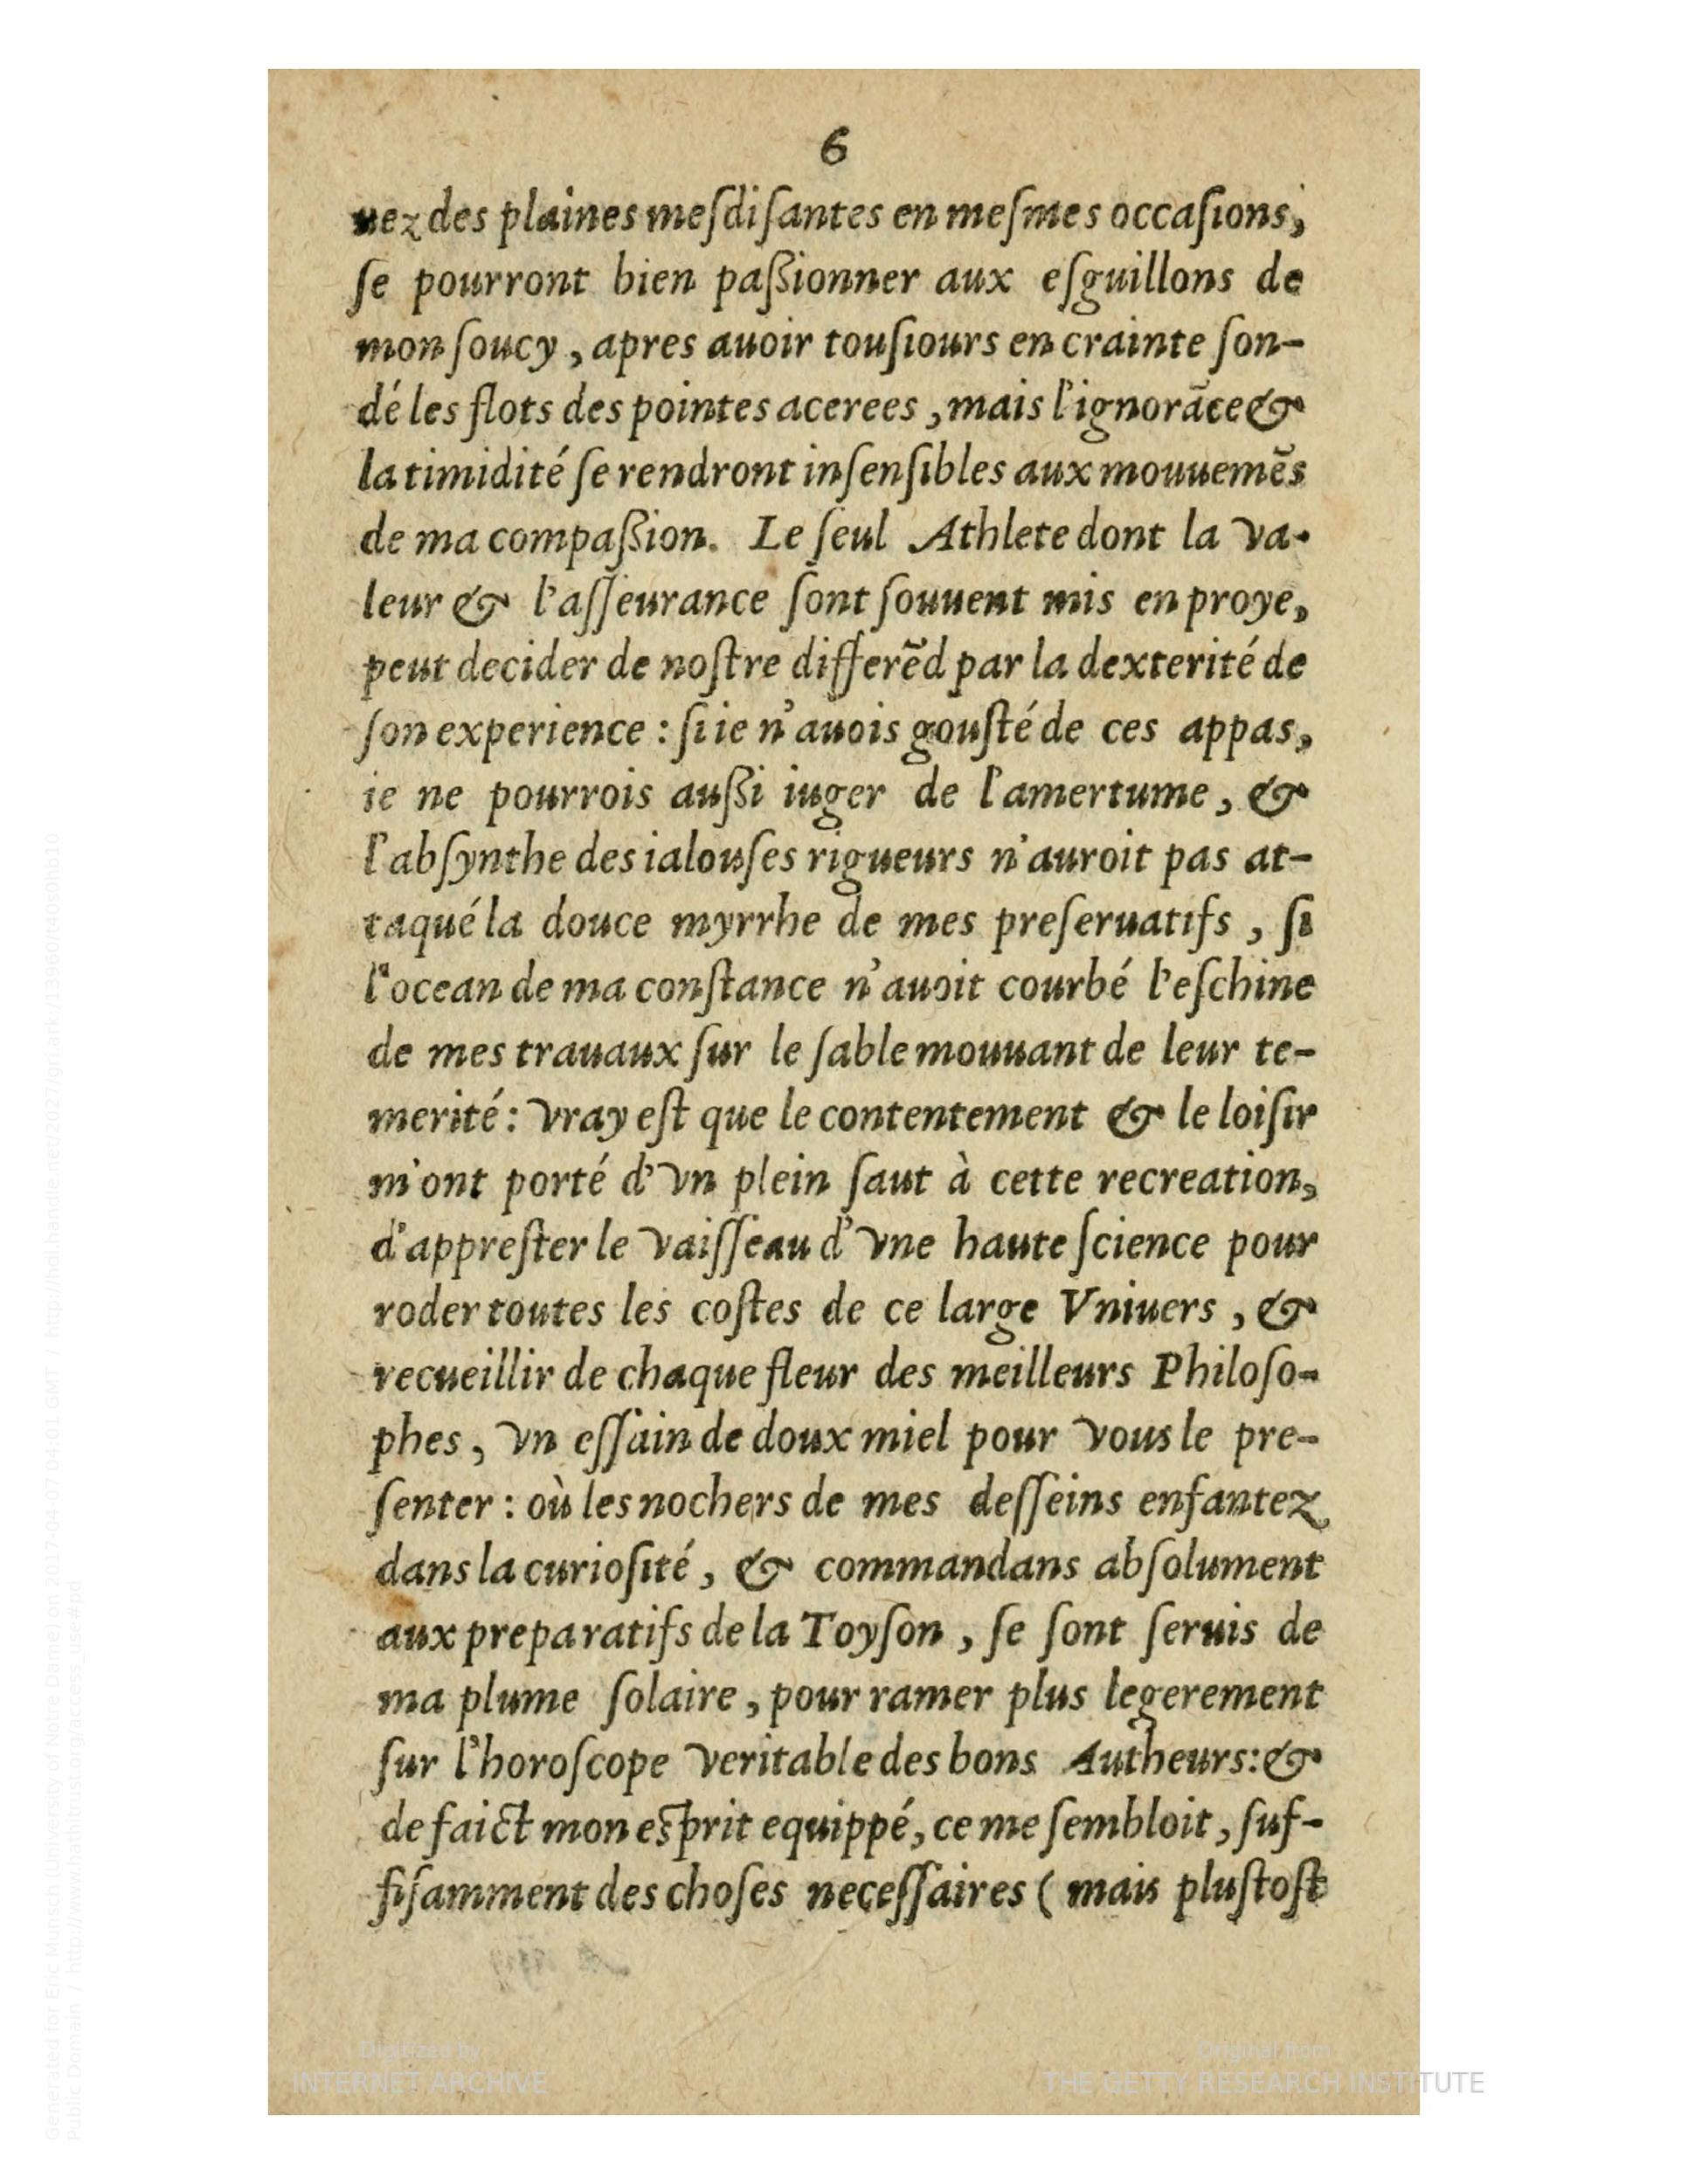 6
uez des plaines mesdiſantes en meſmes occaſions,
ſe pourront bien paßionner aux eſguillons de
mon ſoucy, apres auoir touſiours en crainte ſon-
dé les flots des pointes acerees, mais l'ignorãce &
la timidité ſe rendront inſenſibles aux mouuemẽs
de ma compaßion. Le ſeul Athlete dont la va-
leur & l'aſſeurance ſont ſouuent mis en proye,
peut decider de noſtre differẽd par la dexterité de
ſon experience : ſi ie n'auois gouſté de ces appas,
ie ne pourrois außi iuger de l'amertume, &
l'abſynthe des ialouſes rigueurs n'auroit pas at-
taqué la douce myrrhe de mes preſeruatifs, ſi
l'ocean de ma conſtance n'auoit courbé l'eſchine
de mes trauaux ſur le ſable mouuant de leur te-
merité : vray eſt que le contentement & le loiſir
m'ont porté d'vn plein ſaut à cette recreation,
d'appreſter le vaiſſeau d'vne haute ſcience pour
roder toutes les coſtes de ce large Vniuers, &
recueillir de chaque fleur des meilleurs Philoſo-
phes, vn eſſain de doux miel pour vous le pre-
ſenter : où les nochers de mes deſſeins enfantez
dans la curioſité, & commandans abſolument
aux preparatifs de la Toyſon, ſe ſont ſeruis de
ma plume ſolaire, pour ramer plus legerement
ſur l'horoſcope veritable des bons Autheurs : &
de faict mon eſprit equippé, ce me ſembloit, ſuf-
fiſamment des choſes neceſſaires ( mais pluſtoſt
Digitized by
INTERNET ARCHIVE
Original from
THE GETTY RESEARCH INSTITUTE
Generated for Eric Munsch (University of Notre Dame) on 2017-04-07 04:01 GMT / http://hdl.handle.net/2027/gri.ark:/13960/t40s0hb10
Public Domain / http://www.hathitrust.org/access_use#pd